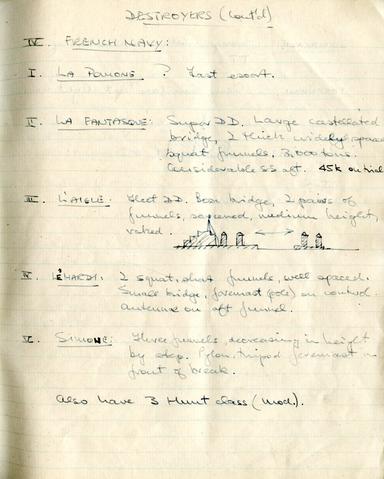 DESTROYERS (Cont'd)
IV. FRENCH NAVY:
I. LA POMONE ? Fast escort.
II. LA FANTASQUE: Super DD. Large castellated
bridge, 2 thick widely spaced
squat funnels. 3,000 tons.
Considerable SS aft. 45k on trial
III. L'AIGLE: Fleet DD. Box bridge, 2 pairs of
funnels, medium height,
raked.
IV. L'HARDI: 2 squat, short funnels, well spaced.
Small bridge, foremast (pole) on control
antennae on aft funnel.
V. SIMOUNE: Three funnels, decreasing in height
by step. Pylon, tripod foremast in
front of break.
Also have 3 Hunt class (Mod.).